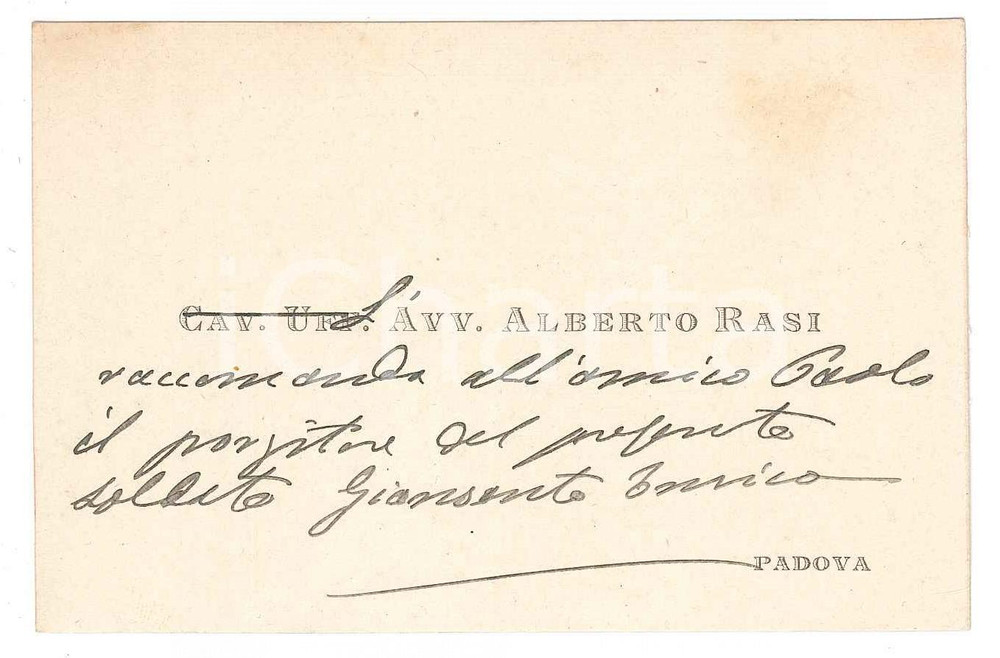 CAV. UFF. L'AVV. ALBERTO RASI
raccomanda all'amico Paolo
il porgitore del presente
soldato Giansante Enrico
PADOVA
iCharta